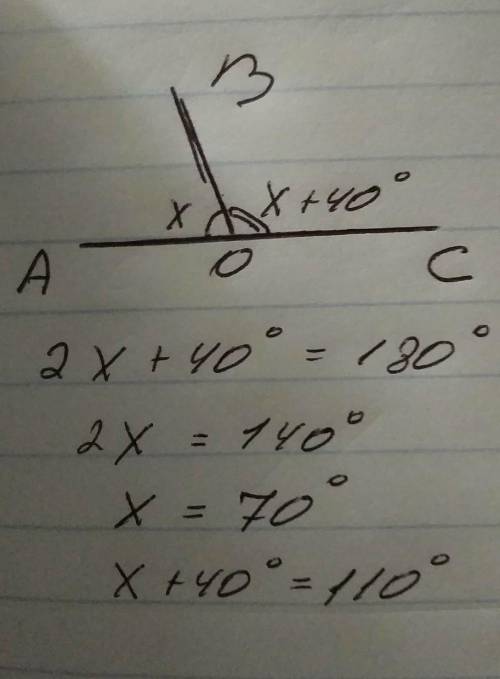 B
x x+40°
A O C
2x+40°=180°
2x=140°
x=70°
x+40°=110°